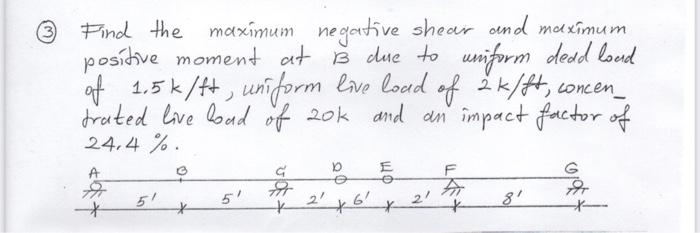 ③ Find the maximum negative shear and maximum
positive moment at B due to uniform dead load
of 1.5 k/ft, uniform live load of 2 k/ft, concen_
trated live load of 20k and an impact factor of
24.4 %.
A B C D E F G
5' 5' 2' 6' 2' 8'